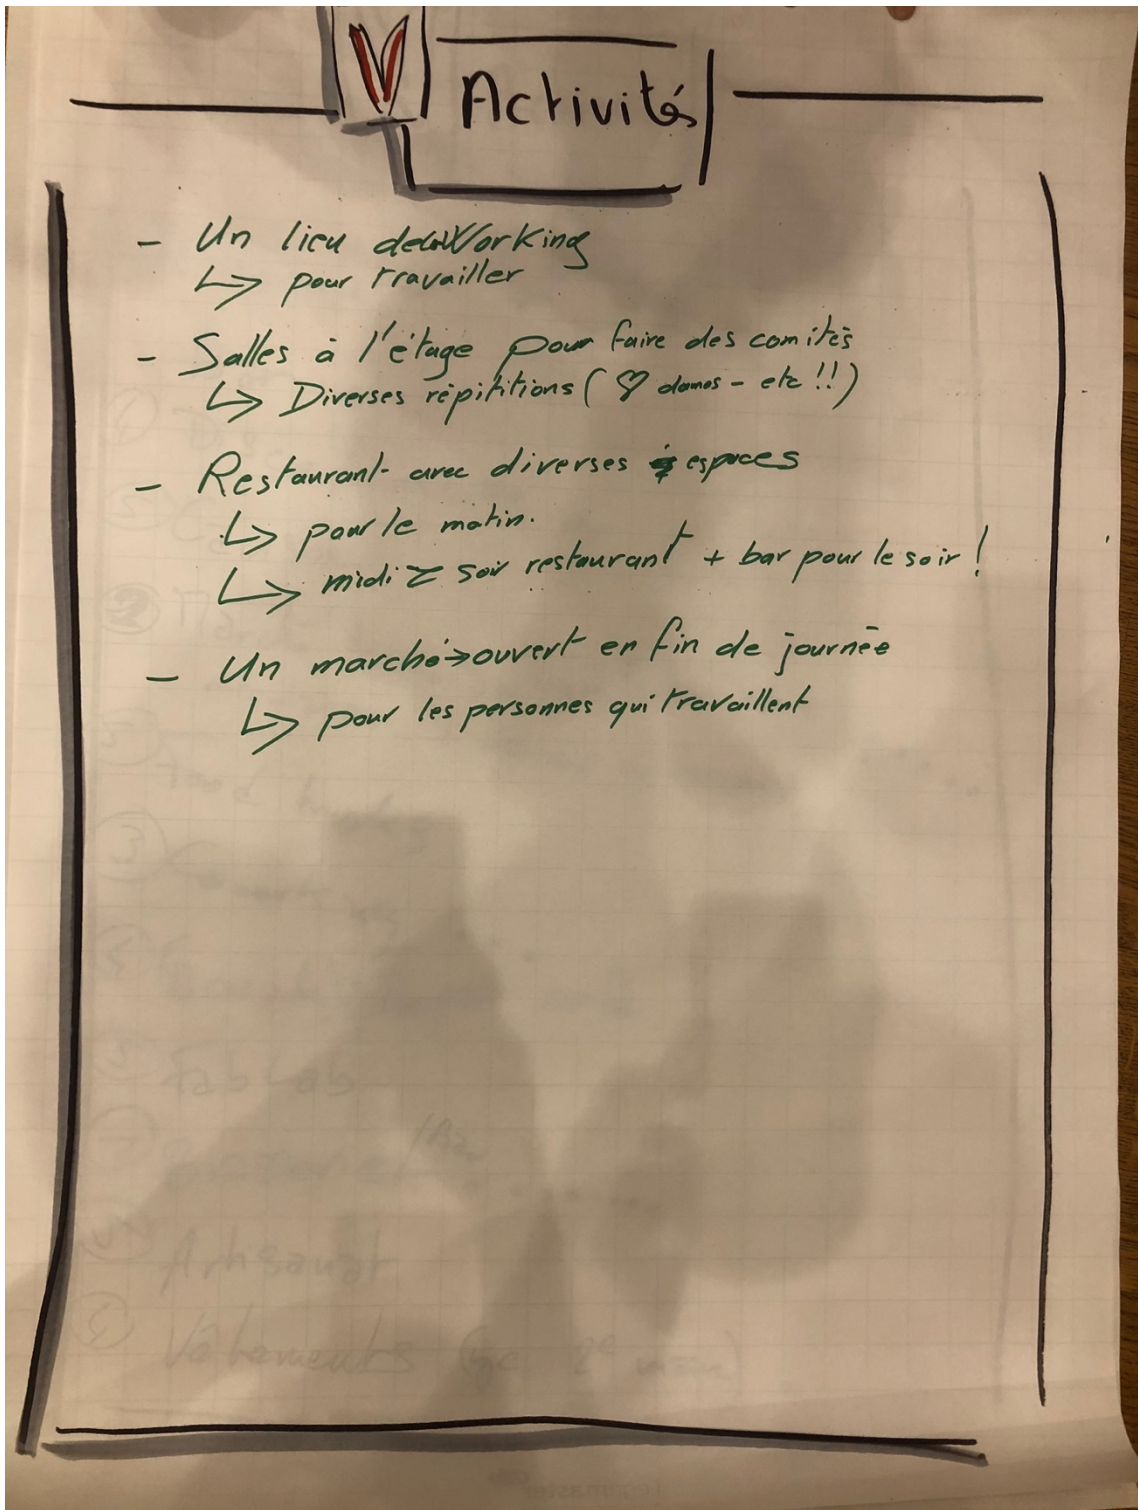 V
Activités
- Un lieu de coWorking
↳ pour travailler
- Salles à l'étage pour faire des comités
↳ Diverses répititions ( ♡ - etc !!)
- Restaurant avec diverses espaces
↳ pour le matin.
↳ midi soir restaurant + bar pour le soir !
- Un marché → ouvert en fin de journée
↳ pour les personnes qui travaillent
FabLab
Artisanat
Vêtements